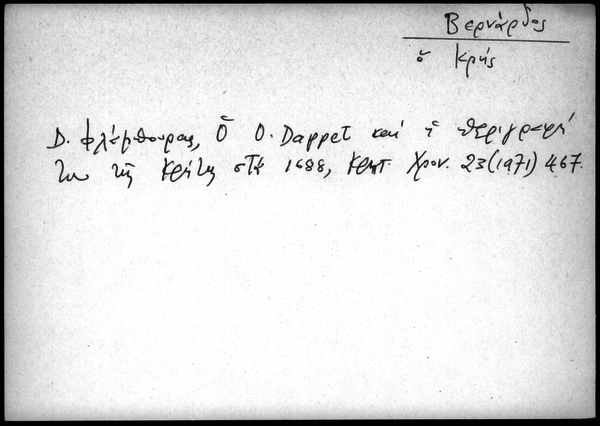 Βερνάρδος
ὁ Κρής
Δ. Φλέμπουρας, Ὁ O. Dapper καί ἡ περιγραφή
του τῆς Κρήτης στά 1688, Κρητ. Χρον. 23(1971) 467.